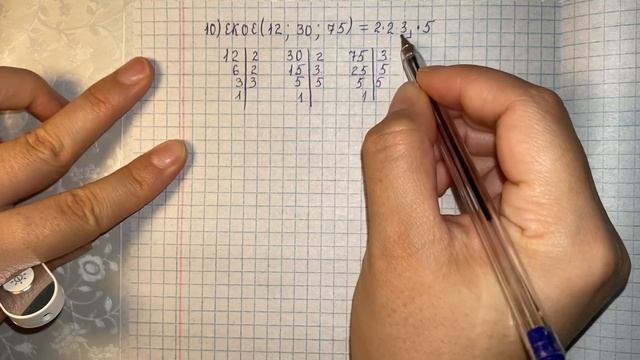 10) ЕКОЕ(12; 30; 75) = 2·2·3·5
12 | 2 30 | 2 75 | 3
6 | 2 15 | 3 25 | 5
3 | 3 5 | 5 5 | 5
1 | 1 | 1 |